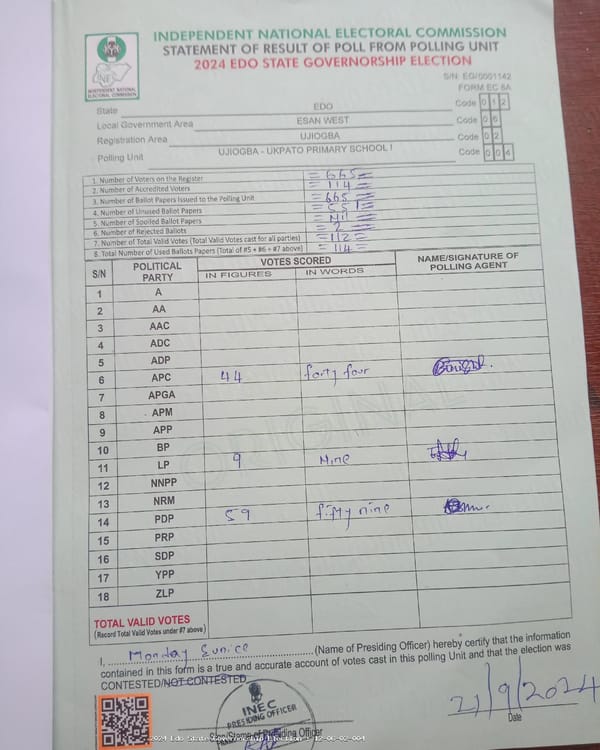 INDEPENDENT NATIONAL ELECTORAL COMMISSION
STATEMENT OF RESULT OF POLL FROM POLLING UNIT
2024 EDO STATE GOVERNORSHIP ELECTION
INEC
INDEPENDENT NATIONAL ELECTORAL COMMISSION
S/N: EG/0001142
FORM EC 8A
State EDO Code 0 1 2
Local Government Area ESAN WEST Code 0 6
Registration Area UJIOGBA Code 0 2
Polling Unit UJIOGBA - UKPATO PRIMARY SCHOOL I Code 0 0 4
1. Number of Voters on the Register =665=
2. Number of Accredited Voters =114=
3. Number of Ballot Papers Issued to the Polling Unit =665=
4. Number of Unused Ballot Papers =551=
5. Number of Spoiled Ballot Papers =Nil=
6. Number of Rejected Ballots =2=
7. Number of Total Valid Votes (Total Valid Votes cast for all parties) =112=
8. Total Number of Used Ballots Papers (Total of #5 + #6 + #7 above) =114=
S/N POLITICAL PARTY VOTES SCORED NAME/SIGNATURE OF POLLING AGENT
IN FIGURES IN WORDS
1 A
2 AA
3 AAC
4 ADC
5 ADP
6 APC 44 forty four
7 APGA
8 APM
9 APP
10 BP
11 LP 9 Nine
12 NNPP
13 NRM
14 PDP 59 fifty nine
15 PRP
16 SDP
17 YPP
18 ZLP
TOTAL VALID VOTES
(Record Total Valid Votes under #7 above)
I, Monday Eunice (Name of Presiding Officer) hereby certify that the information
contained in this form is a true and accurate account of votes cast in this polling Unit and that the election was
CONTESTED/NOT CONTESTED
INEC
PRESIDING OFFICER
Sign/Stamp of Presiding Officer
21/9/2024
Date